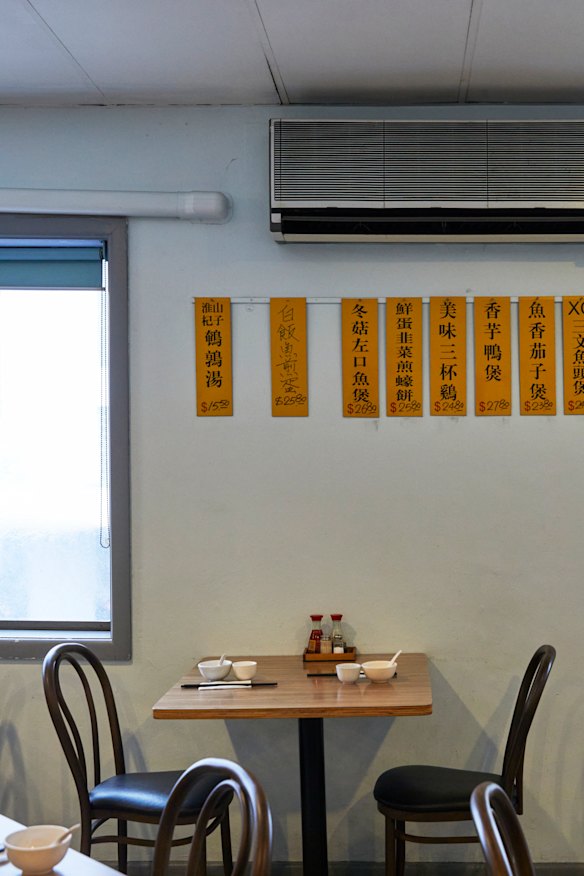 淮山
杞子
鵪鶉湯
$15.50
白飯
煎蛋
$25.80
冬菇左口魚煲
$26.80
鮮蛋韭菜煎蠔餅
$25.80
美味三杯雞
$24.80
香芋鴨煲
$27.80
魚香茄子煲
$23.80
XO
文魚頭煲